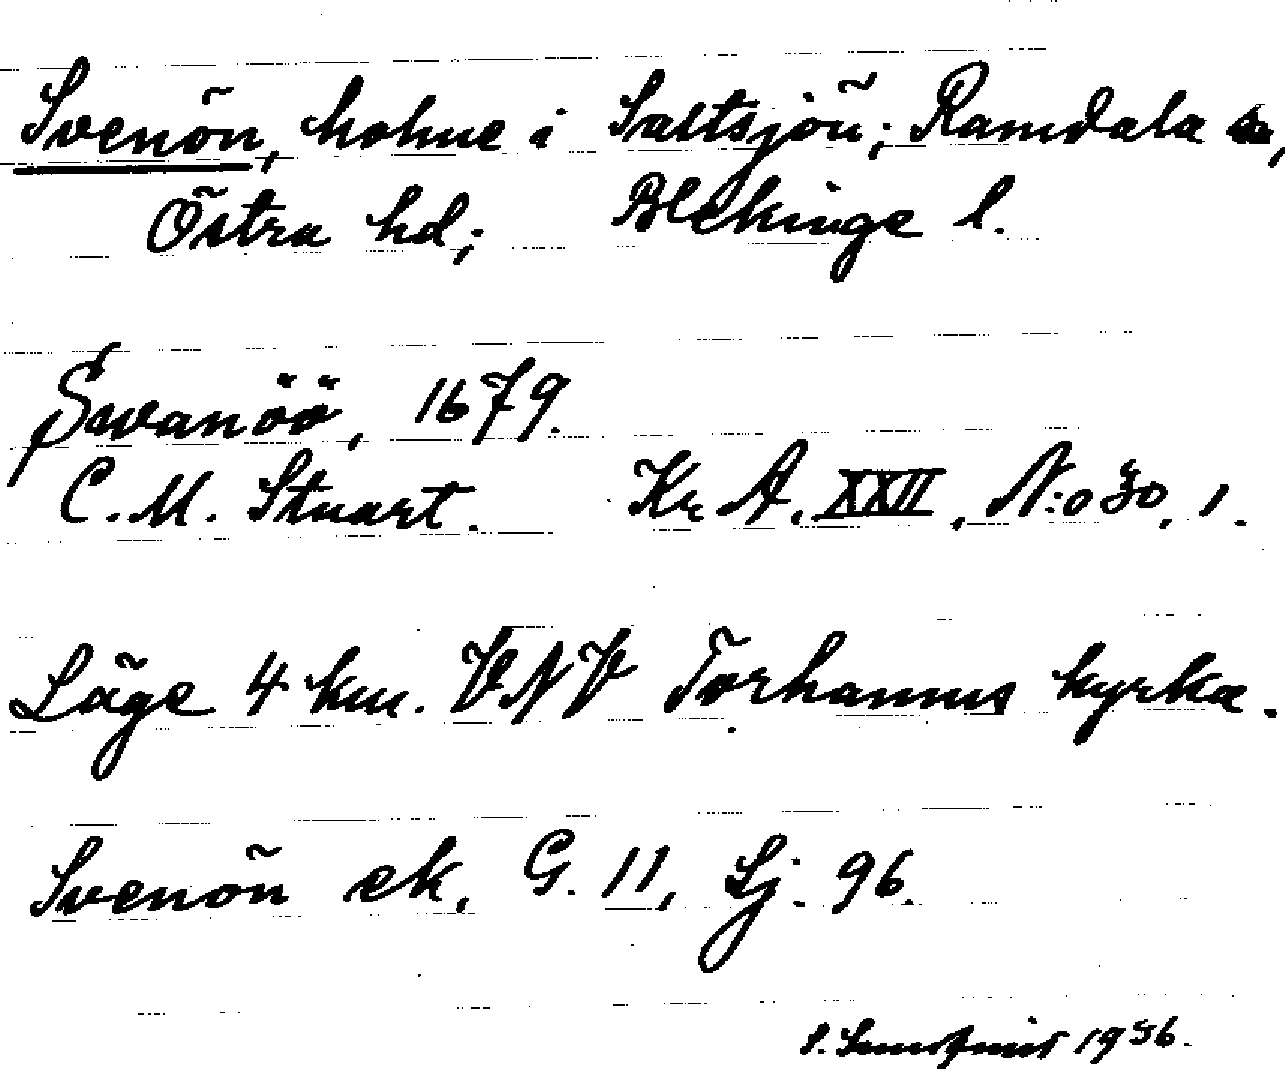 Svenön, holme i Saltsjön; Ramdala sn,
Östra hd; Blekinge l.
Swanöö, 1679.
C. M. Stuart. Kr A. XXII, N:o 30, 1.
Läge 4 km. VNV Torhamns kyrka.
Svenön ek. G. 11, Sj. 96.
1956.